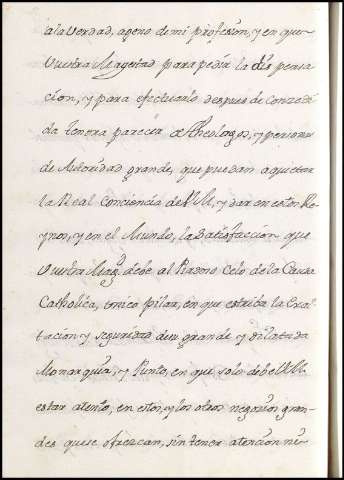 a la verdad, ageno de mi profesion, y en que
Vuestra Magestad para pedir la dispensa
cion, y para efectuarlo despues de concedi
da tenera parecer de Theologos, y personas
de Autoridad grande, que puedan aquietar
la Real Conciencia de VM, y dar en estos Re
ynos, y en el Mundo, la satisfacion que
Vuestra Magd. debe al Zelo de la Causa
Catholica, unico pilar, en que estriba la Exal
tacion y seguridad de su grande y dilatada
Monarquia, y Punto, en que solo debe VM.
estar atento, en estos, y los otros negocios gran-
des que se ofrezcan, sin tener atencion ni